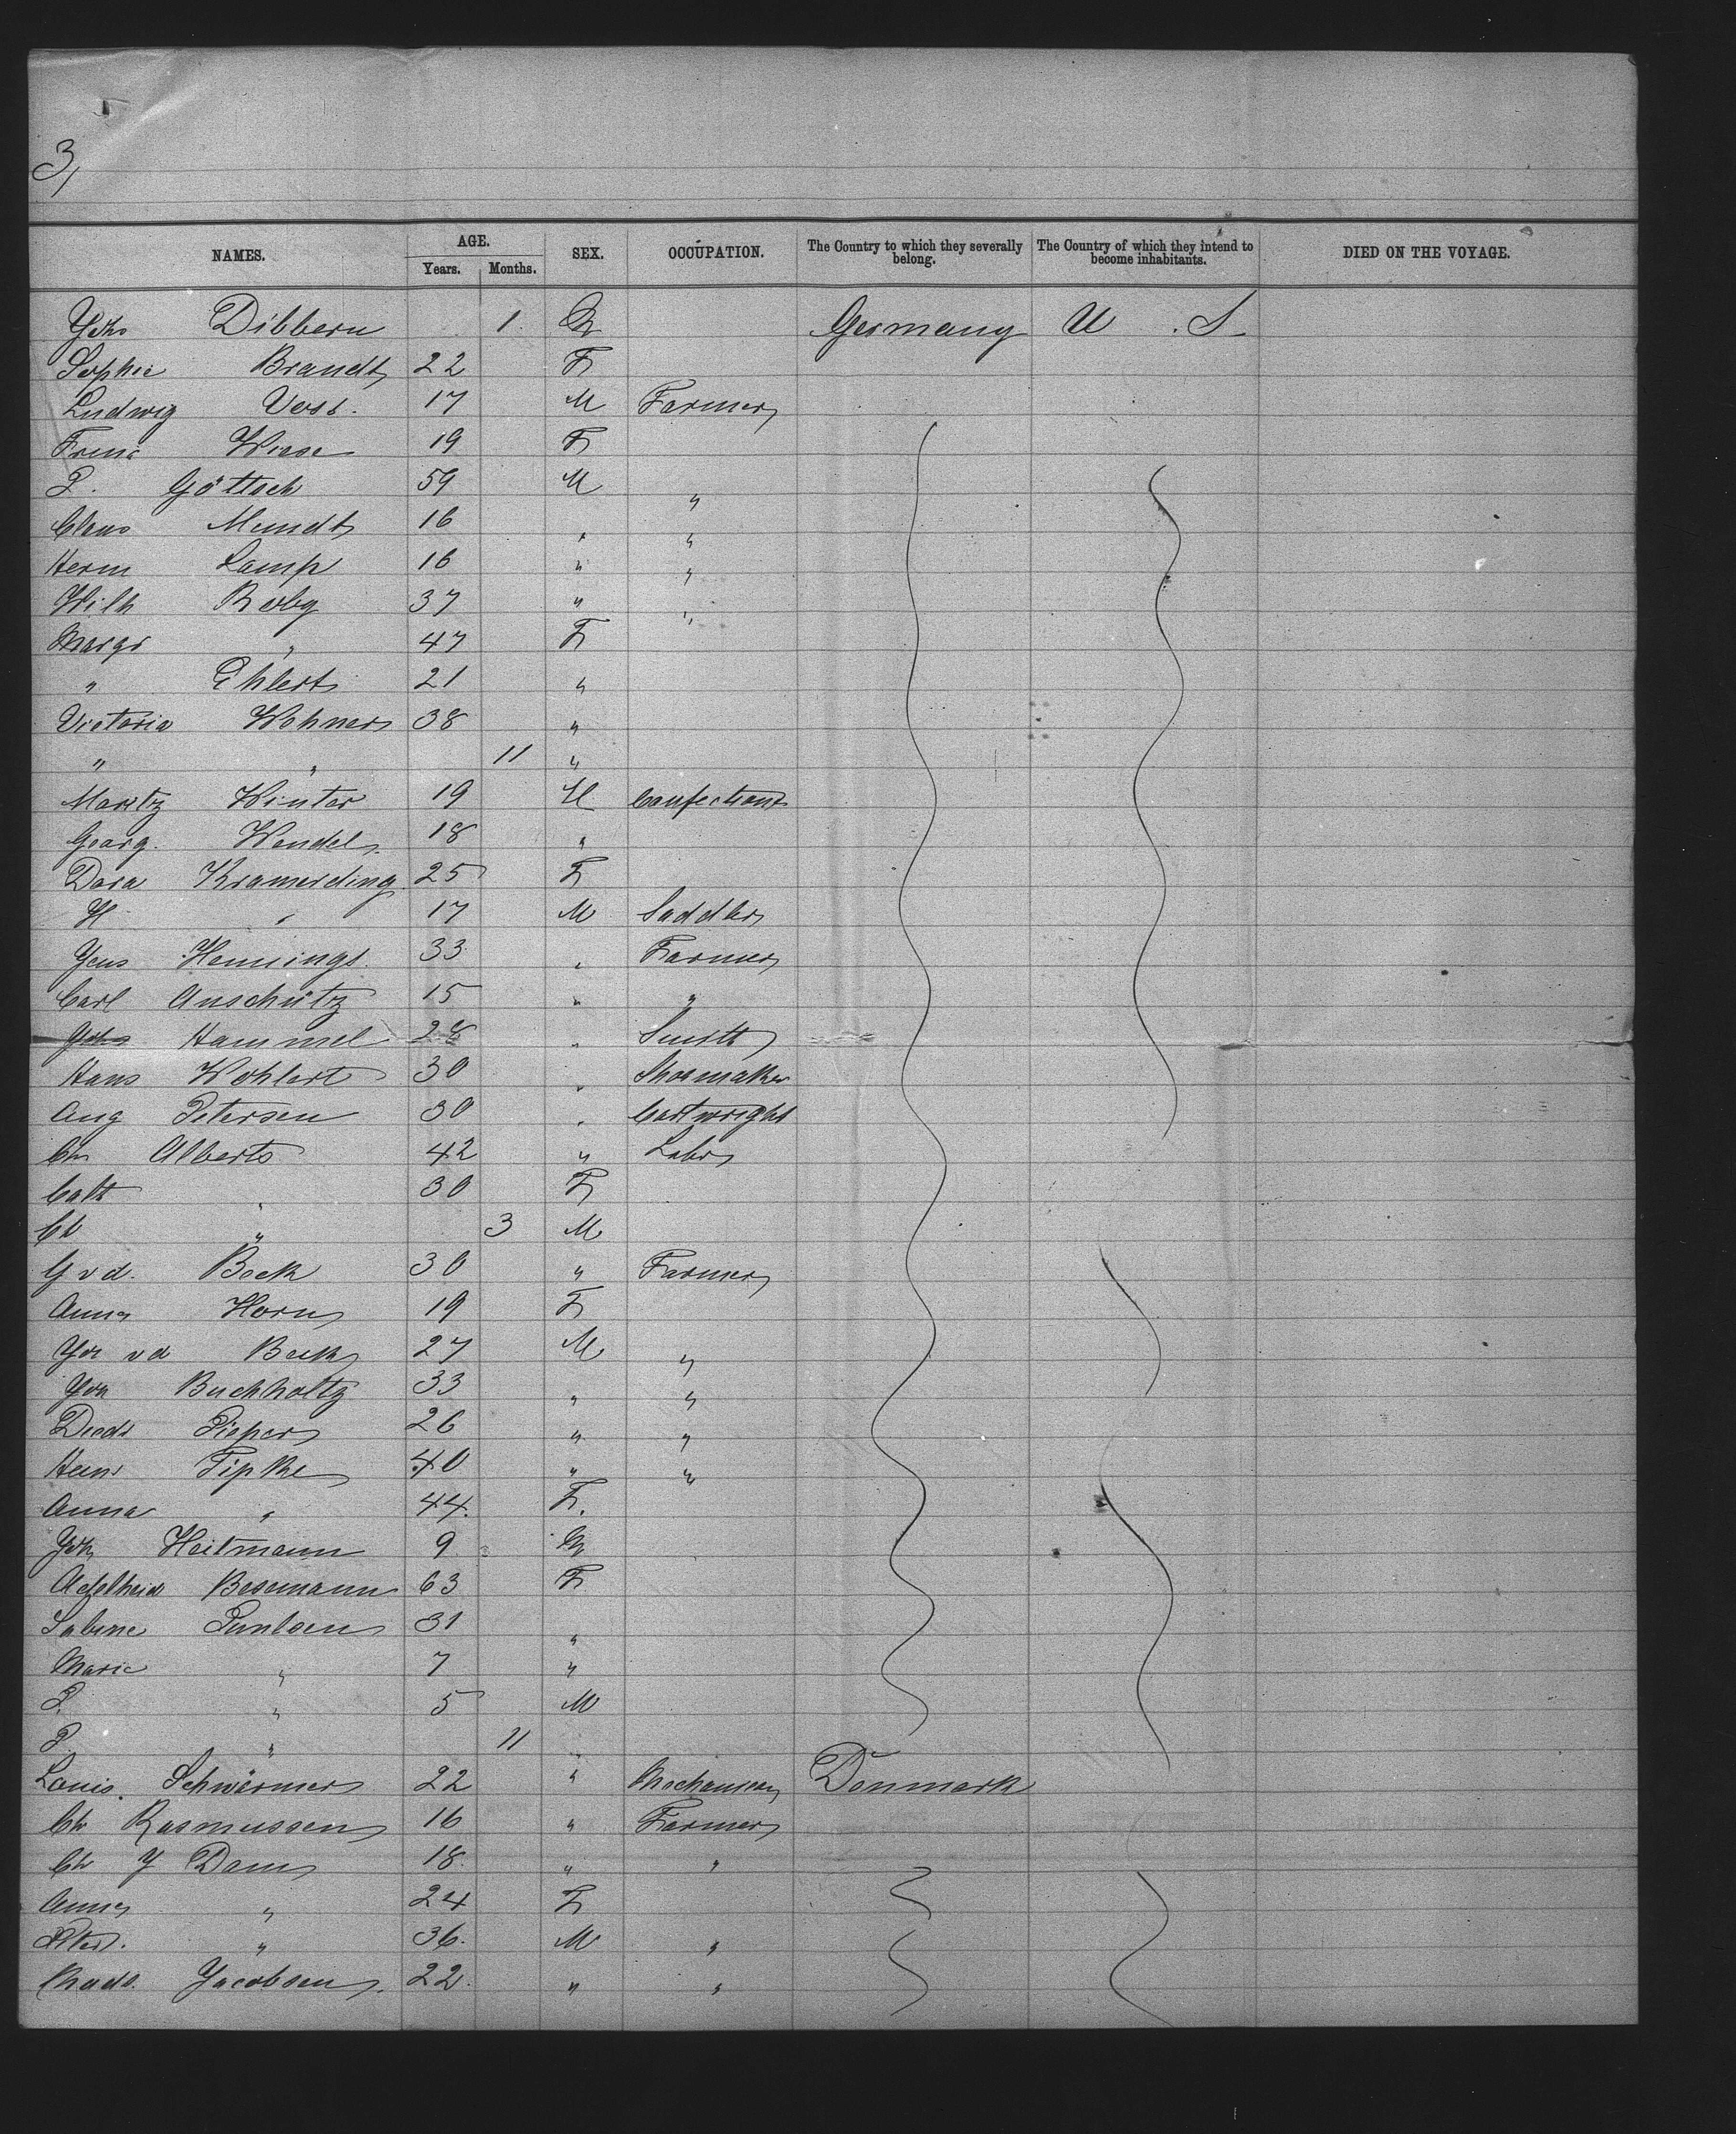 3,
NAMES. AGE. SEX. OCCUPATION. The Country to which they severally belong. The Country of which they intend to become inhabitants. DIED ON THE VOYAGE.
Years. Months.
Joh Dibbern 1 M Germany U . S
Sophie Brandt 22 F
Ludwig Voss. 17 M Farmer
Wiese 19 F
P. Göttsch 59 M "
Claus Mundt 16 " "
Herm Lamp 16 " "
Wilh 37 " "
Margr " 47 F
" Ehlert 21 "
Victoria Wohner 38 "
" " 11 "
Moritz Winter 19 M Confectionr
Georg. Wendel 18 "
Dora Kramerding 25 F
H " 17 M Saddler
Jens Hennings 33 " Farmer
Carl Anschütz 15 " "
Joh Hammel 28 " Smith
Hans Wohlert 30 " Shoemaker
Aug Petersen 30 " Cartwright
Ch Alberts 42 " Labr
Cath " 30 F
Ch " 3 M
G v d. Bock 30 " Farmer
Anna Horn 19 F
Joh v d Bock 27 M "
Joh Buchholtz 33 " "
Diedr Pieper 26 " "
Heinr Tipke 40 " "
Anna " 44. F.
Joh Heitmann 9 M
Adelheid Besemann 63 F
Sabine 31 "
Marie " 7 "
P. " 5 M
P " 11 "
Louis. Schwärmer 22 " Denmark
Ch Rasmussen 16 " Farmer
Ch J Dam 18. " "
Anna " 24 F
Peter. " 36. M "
Mads. Jacobsen. 22. " "